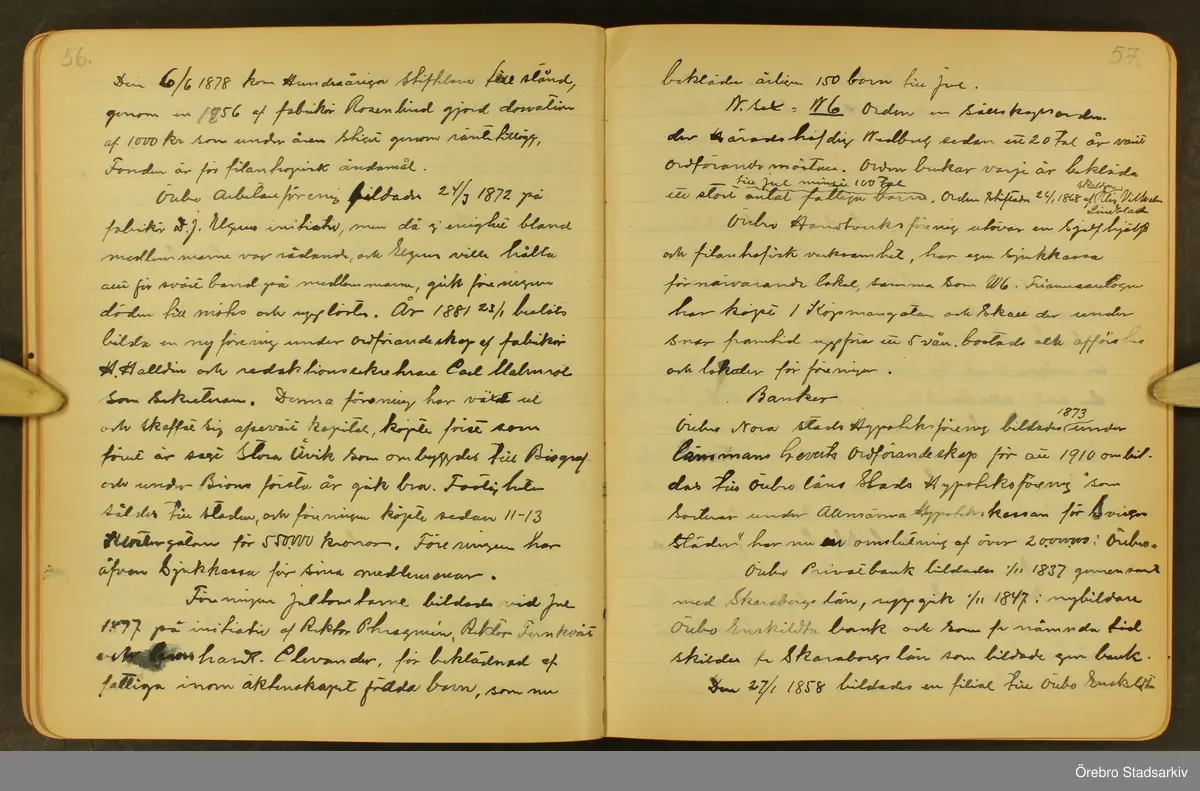 56.
Den 6/6 1878 kom Hundraåriga stiftelsen till stånd,
genom en 1856 af fabrikör Rosenlind gjord donation
af 1000 kr som under åren stigit genom räntetillägg,
Fonden är för filantropisk ändamål.
Örebro Arbetareförenig bildades 24/3 1872 på
fabrikör D.J. Elgérus initiativ, men då ej enighet bland
medlemmarne var rådande, och Elgérus ville hålla
allt för svårt band på medlemmarne, gick föreningen
döden till mötes och upplöstes. År 1881 23/1 beslöts
bilda en ny förenig under ordförandeskap af fabrikör
H. Halldin och redaktionssekreterare Carl Malmrot
som sekreteran. Denna förening har växt ut
och skaffat sig afsevärt kapital, köpte först som
förut är sagt Stora Åvik som ombyggdes till Biograf
och under Bions första år gick bra. Fastigheten
såldes till staden, och föreningen köpte sedan 11-13
Klostergatan för 550.000 kronor. Föreningen har
äfven Sjukkassa för sina medlemmar.
Föreningen Jultomtarne bildades vid Jul
1877 på initiativ af Rektor Phragmén, Rektor Ternkvist
och handl. Clevander, för beklädnad af
fattiga inom äktenskapet födda barn, som nu
57.
bekläder årligen 150 barn till jul.
W. sex = W6 Orden en sällskapsorden.
der Häradshöfding Wedberg sedan ett 20 tal år varit
ordförande mästare. Orden brukar varje år bekläda
till Jul minst 100 tal
ett stort antal fattiga barn. Orden stiftades 24/1 1868 af Vilhelm
Lindblad
Örebro Hantverksförenig utövar en hjelphjälp
och filantrofisk verksamhet, har egen sjukkassa
för närvarande lokal, samma som W6: Frimurarelogen
har köpt 1 Köpmangatan och skall der under
snar framtid uppföra ett 5 vån. bostads och affärshus
och lokaler för föreningen.
Banker
1873
Örebro Nora stads Hypoteksförenig bildades under
länsmans Ordförandeskap för att 1910 ombil-
das till Örebro läns Stads Hypoteksförenig "som
sorterar under Allmänna Hypotekskassan för Sveriges
städer" har nu en omslutning af över 20.000.000 i Örebro.
Örebro Privatbank bildades 1/11 1837 gemensamt
med Skaraborgs län, uppgick 1/11 1847 i nybildade
Örebro Enskilda bank och som fr nämnda tid
skildes fr Skaraborgs län som bildade egen bank.
Den 27/1 1858 bildades en filial till Örebro Enskilda
Örebro Stadsarkiv